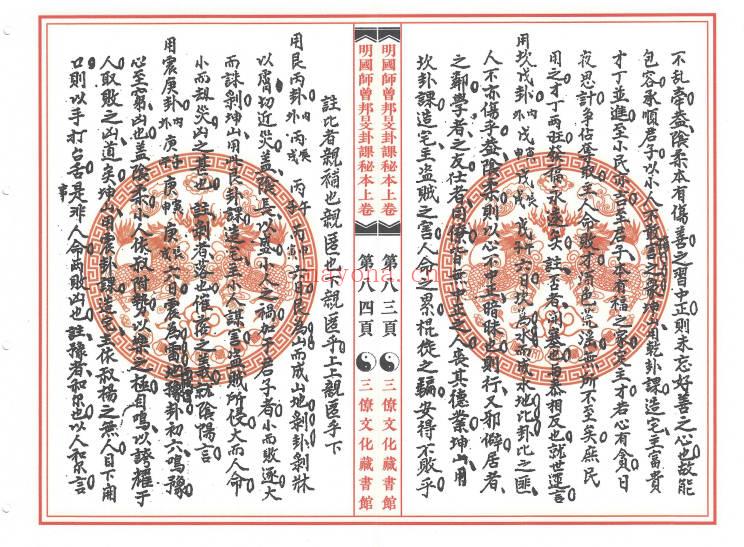 不乱牵益陰柔本有傷善之習中正則未忘好善之心也故能
包容承順君子以小人不敢害之矣坤山用乾卦課造宅主富貴
才丁並進至小民亦吉至君子本有福之家定主才若心有貪日
夜思計爭佔奪殺主人命敗才酒色荒淫無所不至矣庶民
用之才丁両旺發福永遠矣 註否者閉塞也両泰相反也就世運言
用坎戊卦内外戊申戊戌戊午六日坎為水而成水地比卦比之匪
人不亦傷乎盖陰柔則以心不中正暗昧也則行又邪僻居者
之鄰學者之友仕者同僚皆無中正之人喪其德業坤山用
坎卦課造宅主盗賊之害人命之累棍徒之騙安得不敗乎
明國師曾邦旻卦課秘本上卷
第八三頁
三僚文化藏書館
明國師曾邦旻卦課秘本上卷
第八四頁
三僚文化藏書館
註比者親補也親匪也下親匪乎上上親匪乎下
用艮丙卦内外丙辰丙戌丙午丙申六日艮為山而成山地剥卦剝牀
以膚切近災盖陰長以盛小人之禍加于君子者小而敗逐大
而誅剥坤山用此艮卦課造宅主小人謀害盗賊所侵大而人命
小而刼災凶之甚也 註剥者落也催傷之義就陰陽言
用震庚卦内外庚子庚午庚寅庚申庚辰庚戌六日震為雷地豫卦初六鳴豫
心至窮凶也盖陰柔小人依权附勢以樂之極自鳴以誇耀于
人取敗之凶道矣坤山用震卦課造宅主依权楊之無人目下閙
口則以手打台舌是非人命両敗凶也註豫者和樂也以人和樂言
事